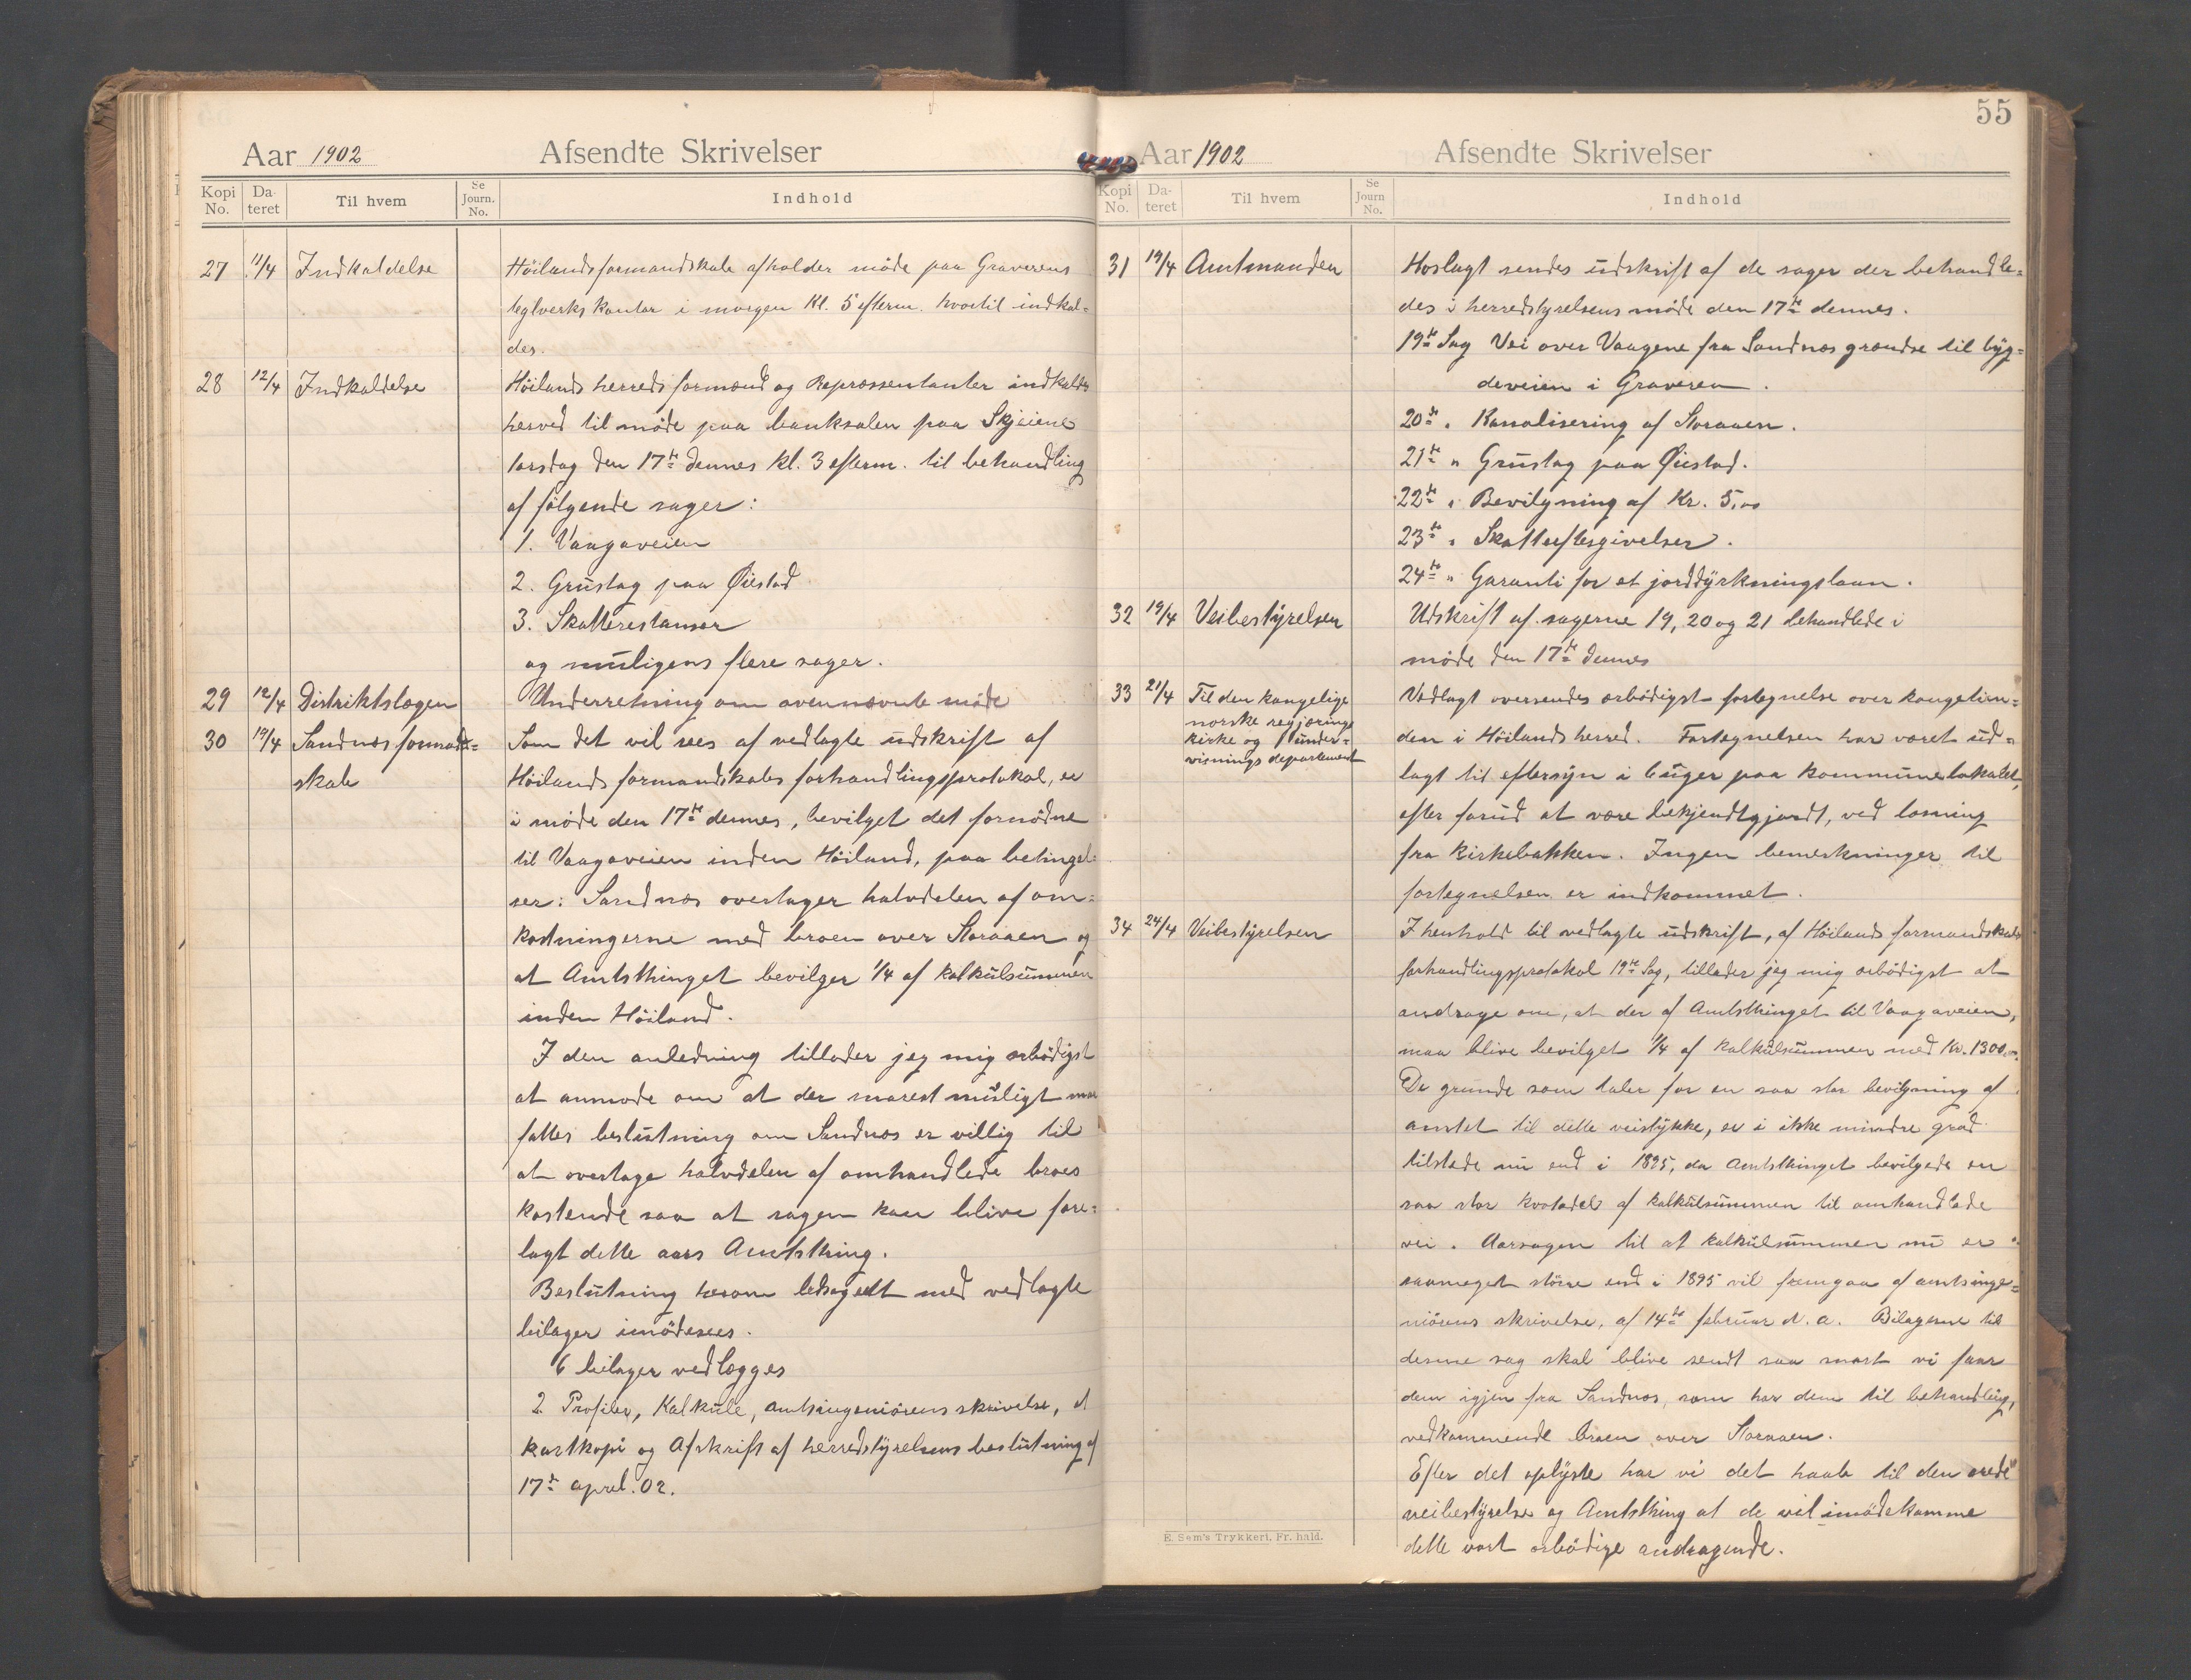 Aar 1902 Afsendte Skrivelser
Kopi No. Da- teret Til hvem Se Journ. No. Indhold
27 11/4 Indkaldelse Höilands formandskab afholder möde paa Graverens
teglverks kontor i morgen Kl. 5 efterm. hvortil indkal=
des.
28 12/4 Indkaldelse Höilands herreds formænd og Repræssentanter indkaldes
herved til möde paa banksalen paa Skjæiene
torsdag den 17de dennes kl. 3 efterm. til behandling
af fölgende sager:
1. Vaagaveien
2. Grustag paa Øiestad
3. Skatterestanser
og muligens flere sager.
29 12/4 Distriktslægen Underretning om ovennævnte möde
30 19/4 Sandnæs formand= Som det vil sees af vedlagte udskrift af
skab Höilands formandskabs forhandlingsprotokol, er
i möde den 17de dennes, bevilget det fornödne
til Vaagaveien inden Höiland, paa betingel=
ser: Sandnæs overtager halvdelen af om=
kostningerne med broen over Storaaen og
at Amtsthinget bevilger 1/4 af kalkulsummen
inden Höiland.
I den anledning tillader jeg mig ærbödigst
at anmode om at der snarest muligt maa
fattes beslutning om Sandnæs er villig til
at overtage halvdelen af omhandlede broes
kostende saa at sagen kan blive fore=
lagt dette aars Amtsthing.
Beslutning herom ledsaget med vedlagte
bilager imödesees.
6 bilager vedlægges
2 Profiler, Kalkule, amtsingeniörens skrivelse, et
kartkopi og Afskrift af herredstyrelsens beslutning af
17de april. 02.
55
Aar 1902 Afsendte Skrivelser
Kopi No. Da- teret Til hvem Se Journ No. Indhold
31 19/4 Amtmanden Hoslagt sendes udskrift af de sager der behandle=
des i herredstyrelsens möde den 17de dennes.
19de Sag Vei over Vaagene fra Sandnæs grændse til byg=
deveien i Graveren.
20de " Kanalisering af Storaaen.
21de " Grustag paa Øiestad.
22de " Bevilgning af Kr. 5,00
23de " Skatteeftergivelser.
24de " Garanti for et jorddyrkningslaan.
32 19/4 Veibestyrelsen Udskrift af sagerne 19, 20 og 21 behandlede i
möde den 17de dennes
33 21/4 Til den kongelige Vedlagt oversendes ærbödigst fortegnelse over kongetien=
norske regjærings
kirke og under= den i Höilands herred. Fortegnelsen har været ud=
visnings departement
lagt til eftersyn i 6 uger paa kommunelokalet,
efter forud at være bekjendtgjordt, ved læsning
fra kirkebakken. Ingen bemerkninger til
fortegnelsen er indkommet.
34 24/4 Veibestyrelsen I henhold til vedlagte udskrift, af Höilands formandskabs
forhandlingsprotokol 19de Sag, tillader jeg mig ærbödigst at
andrage om, at der af Amtsthinget til Vaagaveien,
maa blive bevilget 1/4 af kalkulsummen med Kr. 1300,00.
De grunde som taler for en saa stor bevilgning af
amtet til dette veistykke, er i ikke mindre grad
tilstede nu end i 1895, da Amtsthinget bevilgede en
saa stor kvotadel af kalkulsummen til omhandlede
vei. Aarsagen til at kalkulsummen nu er
saameget större end i 1895 vil fremgaa af amtsinge=
niörens skrivelse, af 14de februar d. a. Bilagerne til
denne sag skal blive sendt saa snart vi faar
dem igjen fra Sandnæs, som har dem til behandling,
vedkommende broen over Storaaen.
Efter det oplyste har vi det haab til den ærede
veibestyrelse og Amtsthing at de vil imödekomme
dette vort ærbödige andragende.
E. Sem's Trykkeri, Fr. hald.